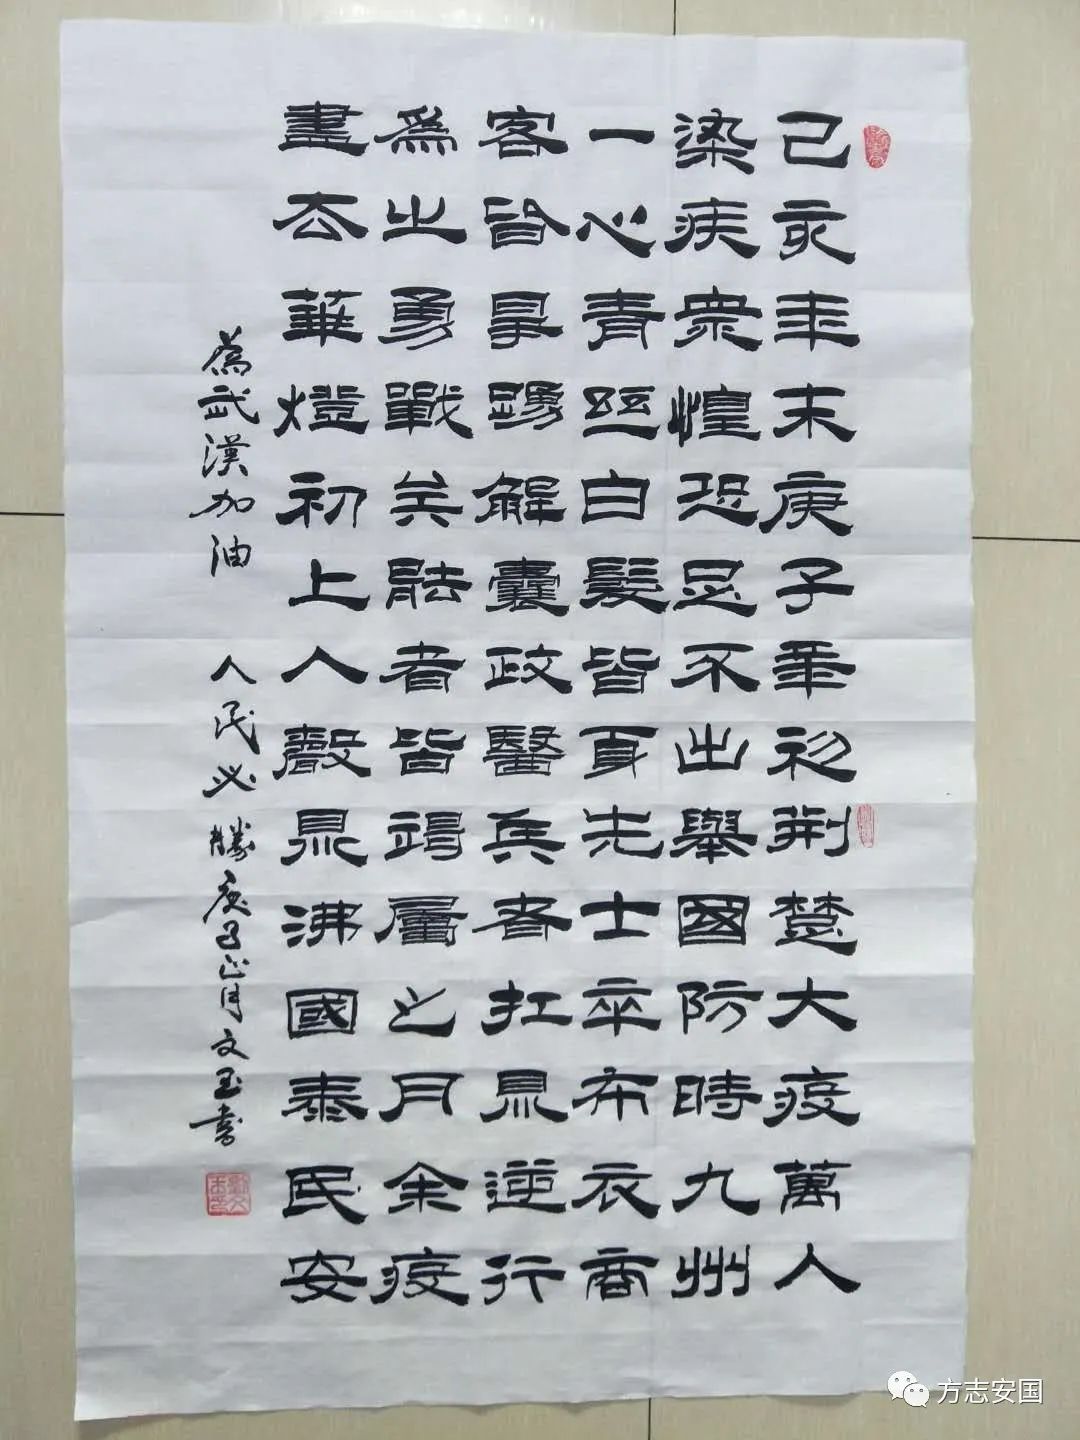 己亥年末庚子年初荆楚大疫萬人
染疾衆惶恐足不出舉國防時九州
一心青丝白髮皆身先士卒布衣商
客皆踴解囊政醫兵者扛鼎逆行
為之勇戰矣能者皆竭屬之月余疫
盡去華燈初上人聲鼎沸國泰民安
為武漢加油 人民必勝 庚子正月文玉書
方志安国